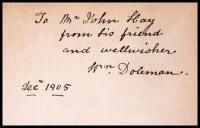 To Mr John Hay
from his friend
and wellwisher
Wm. Doleman.
Decr 1905